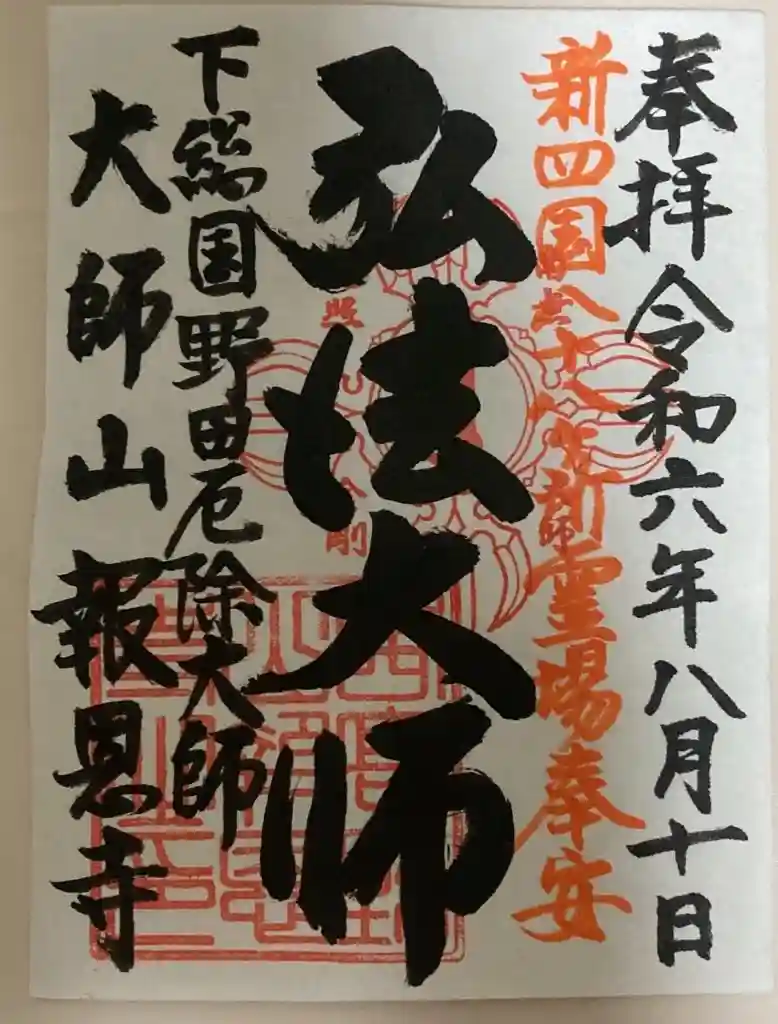 奉拝 令和六年八月十日
新四国八十八ヶ所霊場奉安
弘法大师
下総国野田厄除大師
大師山報恩寺